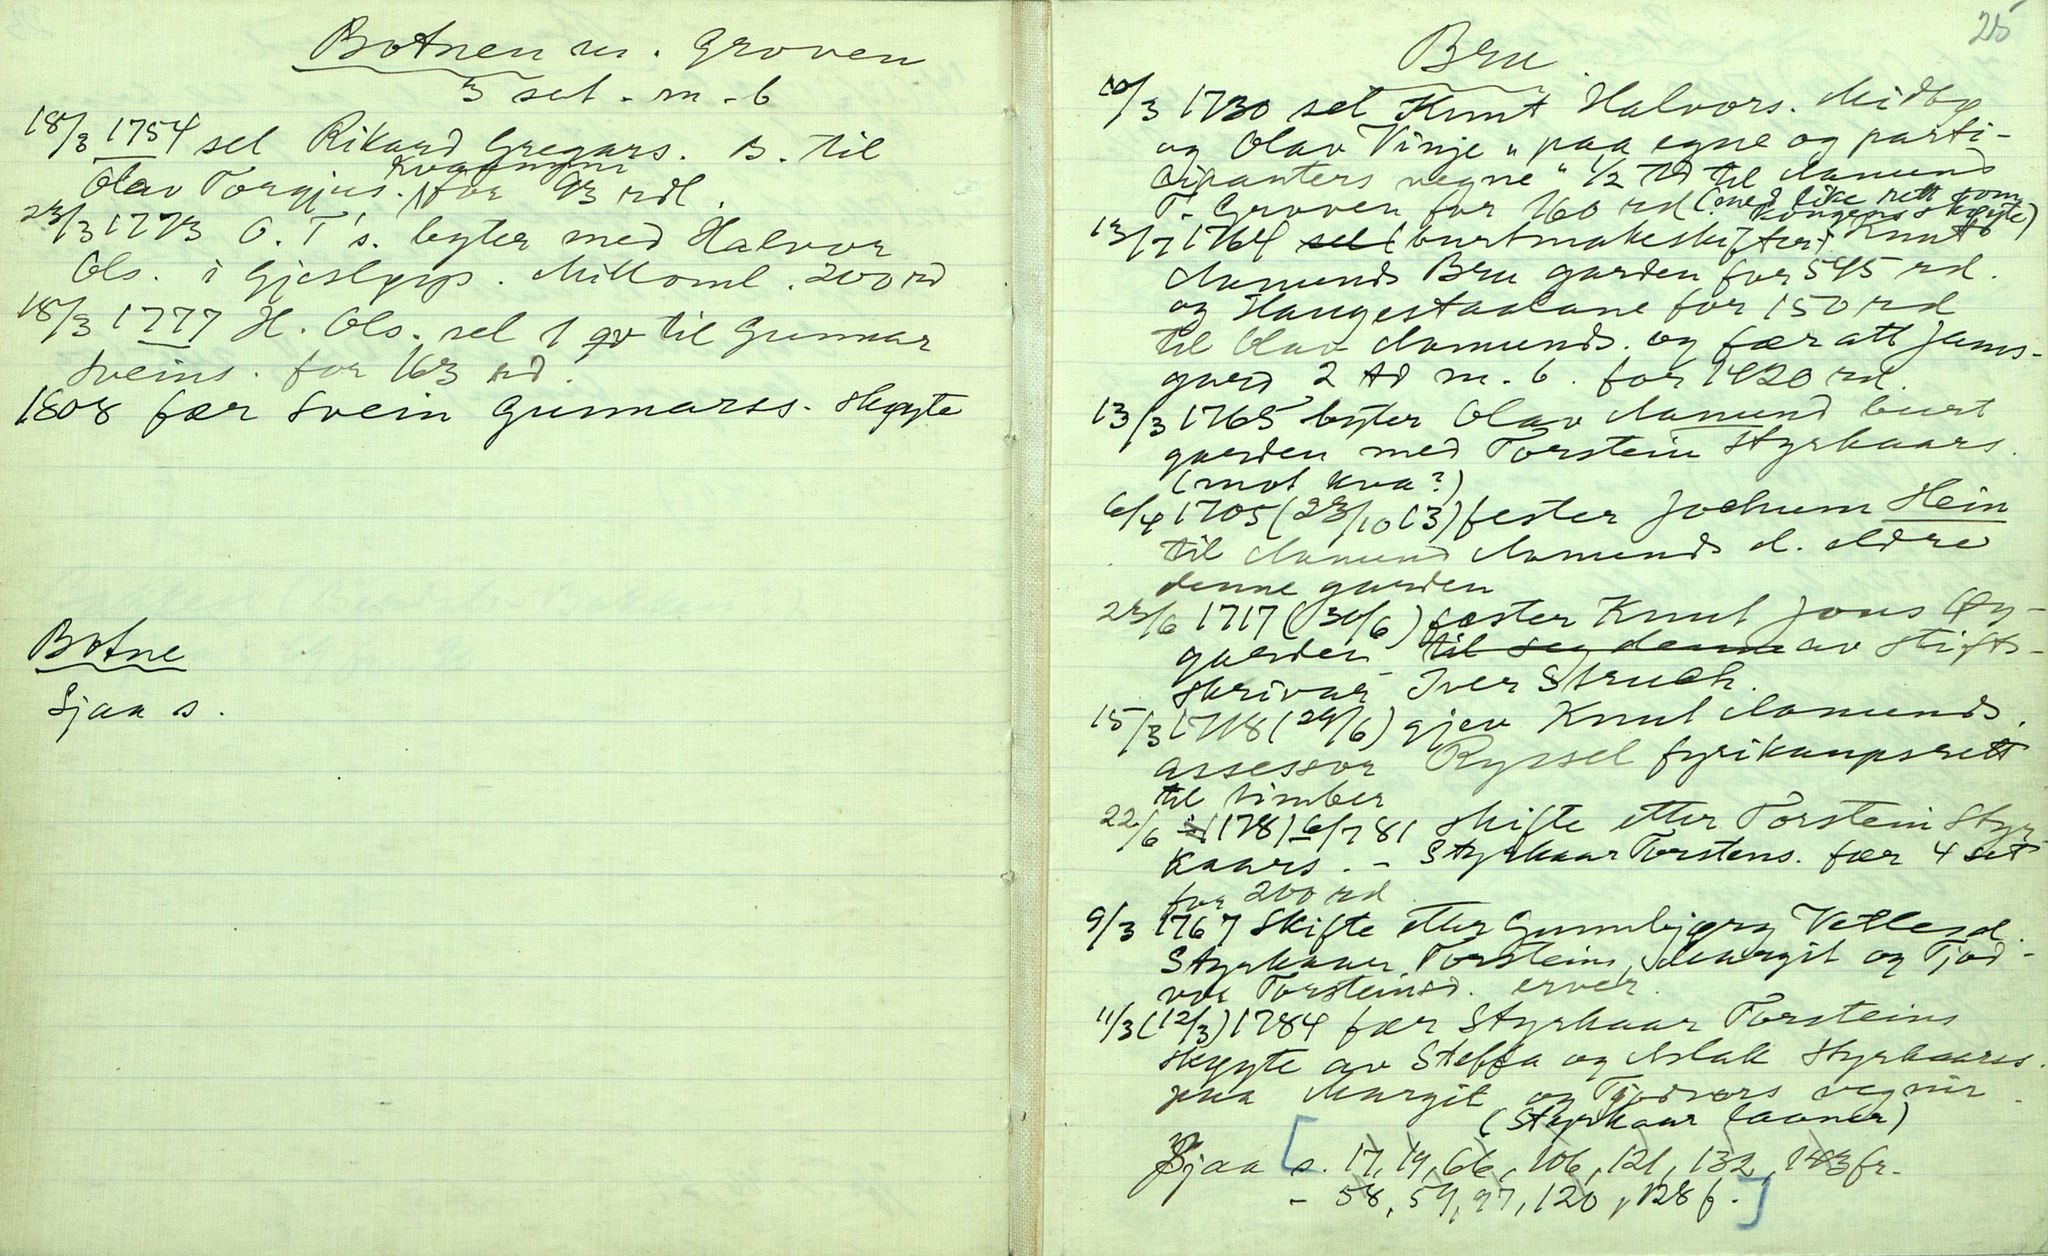 Botnen m. Groven
3 set. m. b
18/3 1754 sel Rikard Gregars. B. til
Kvaalmyr
Olav Torgjus. for 93 rdl.
23/3 1773 O. T's. byter med Halvor
Ols. i Gjeslyys. Milloml. 200 rd
18/3 1777 H. Ols. sel 1 gv til Gunnar
Sveins. for 163 rd.
1808 fær Svein Gunnarss. skøyte
Botne
Sjaa s.
25
Bru
10/3 1730 sel Knut Halvors. Midbø
og Olav Vinje "paa egne og parti-
cipanters vegne" 1/2 td til Aamund
T. Groven for 160 rd. (med like rett som
kongens skøyte)
13/7 1764 sel (burtmakeskifter) Knut
Aamunds Bru garden for 595 rd.
og Haugestaalane for 150 rd
til Olav Aamunds. og fær att Jams-
gard 2 td m. b. for 1420 rd.
13/3 1765 byter Olav Aamund burt
garden med Torstein Styrkaars.
(mot kva?)
6/4 1705 (23/10 13) fester Jochum Hein
til Aamund Aamunds d. eldre
denne garden
23/6 1717 (30/6) fæster Knut Jons Øy-
garden til seg denne av stifts-
skrivar Iver Struch.
15/3 1718 (24/6) gjev Knut Aamunds.
assessor Ryssel fyrikaupsrett
til timber
22/6 (178) 6/7 81 skifte etter Torstein Styr-
kaars. - Styrkaar Torsteins. fær 4 set
for 200 rd
9/3 1767 Skifte etter Gunnbjørg Vetlesd.
Styrkaar Torsteins, Margit og Tjod-
vor Torsteinsd. erver.
11/3 (12/3) 1784 fær Styrkaar Torsteins
skøyte av Steffa og Aslak Styrkaarss.
paa Margit og Tjodvors vegnir.
(Styrkaar laaner)
Sjaa [s. 17, 19, 66, 106, 121, 132, 143 fr.
- 58, 59, 97, 120, 128 f.]